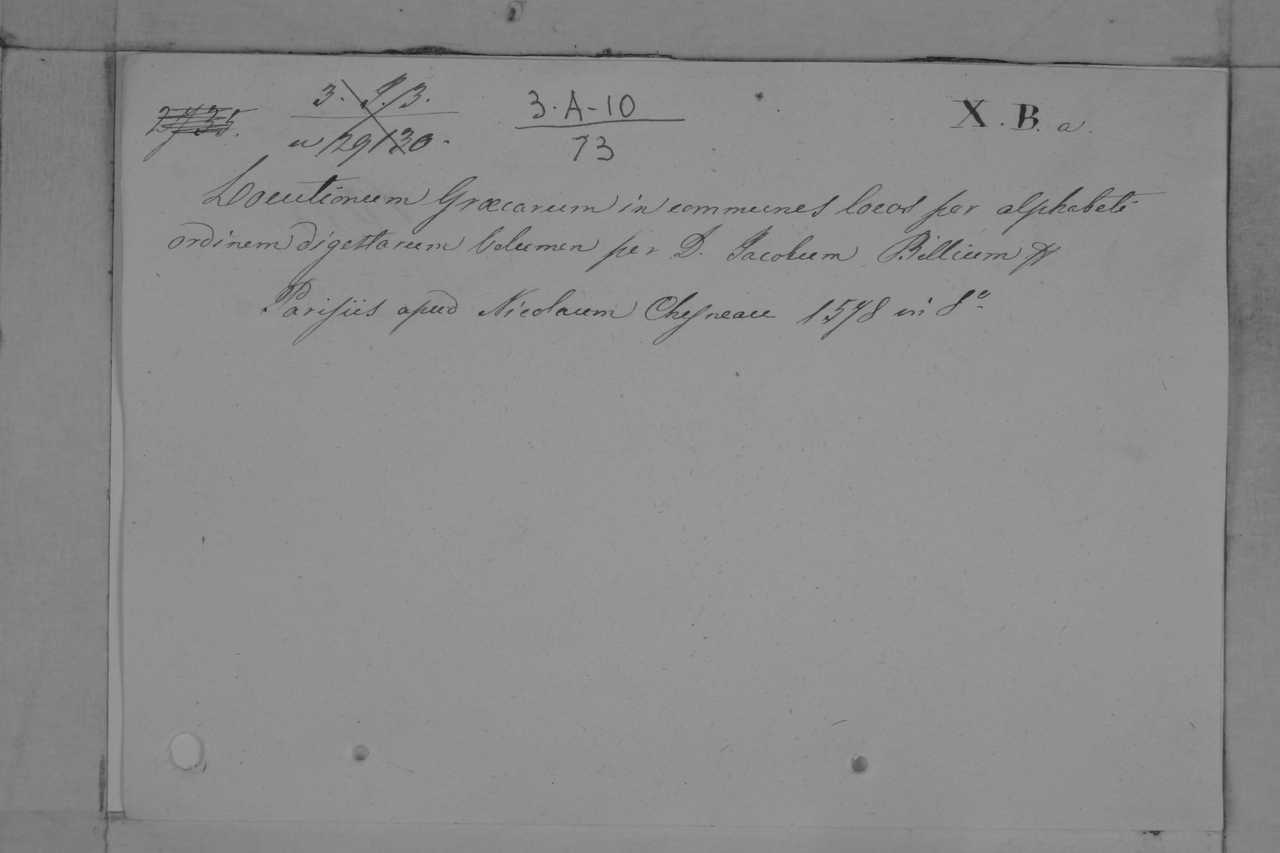 2735. 3. J. 3. 3.A-10 X. B. a.
n 29 130. 73
Locutionum Græcarum in communes locos per alphabeti
ordinem digestarum Volumen per D. Jacobum Billium &
Parisiis apud Nicolaum Chesneau 1578 in 8.º